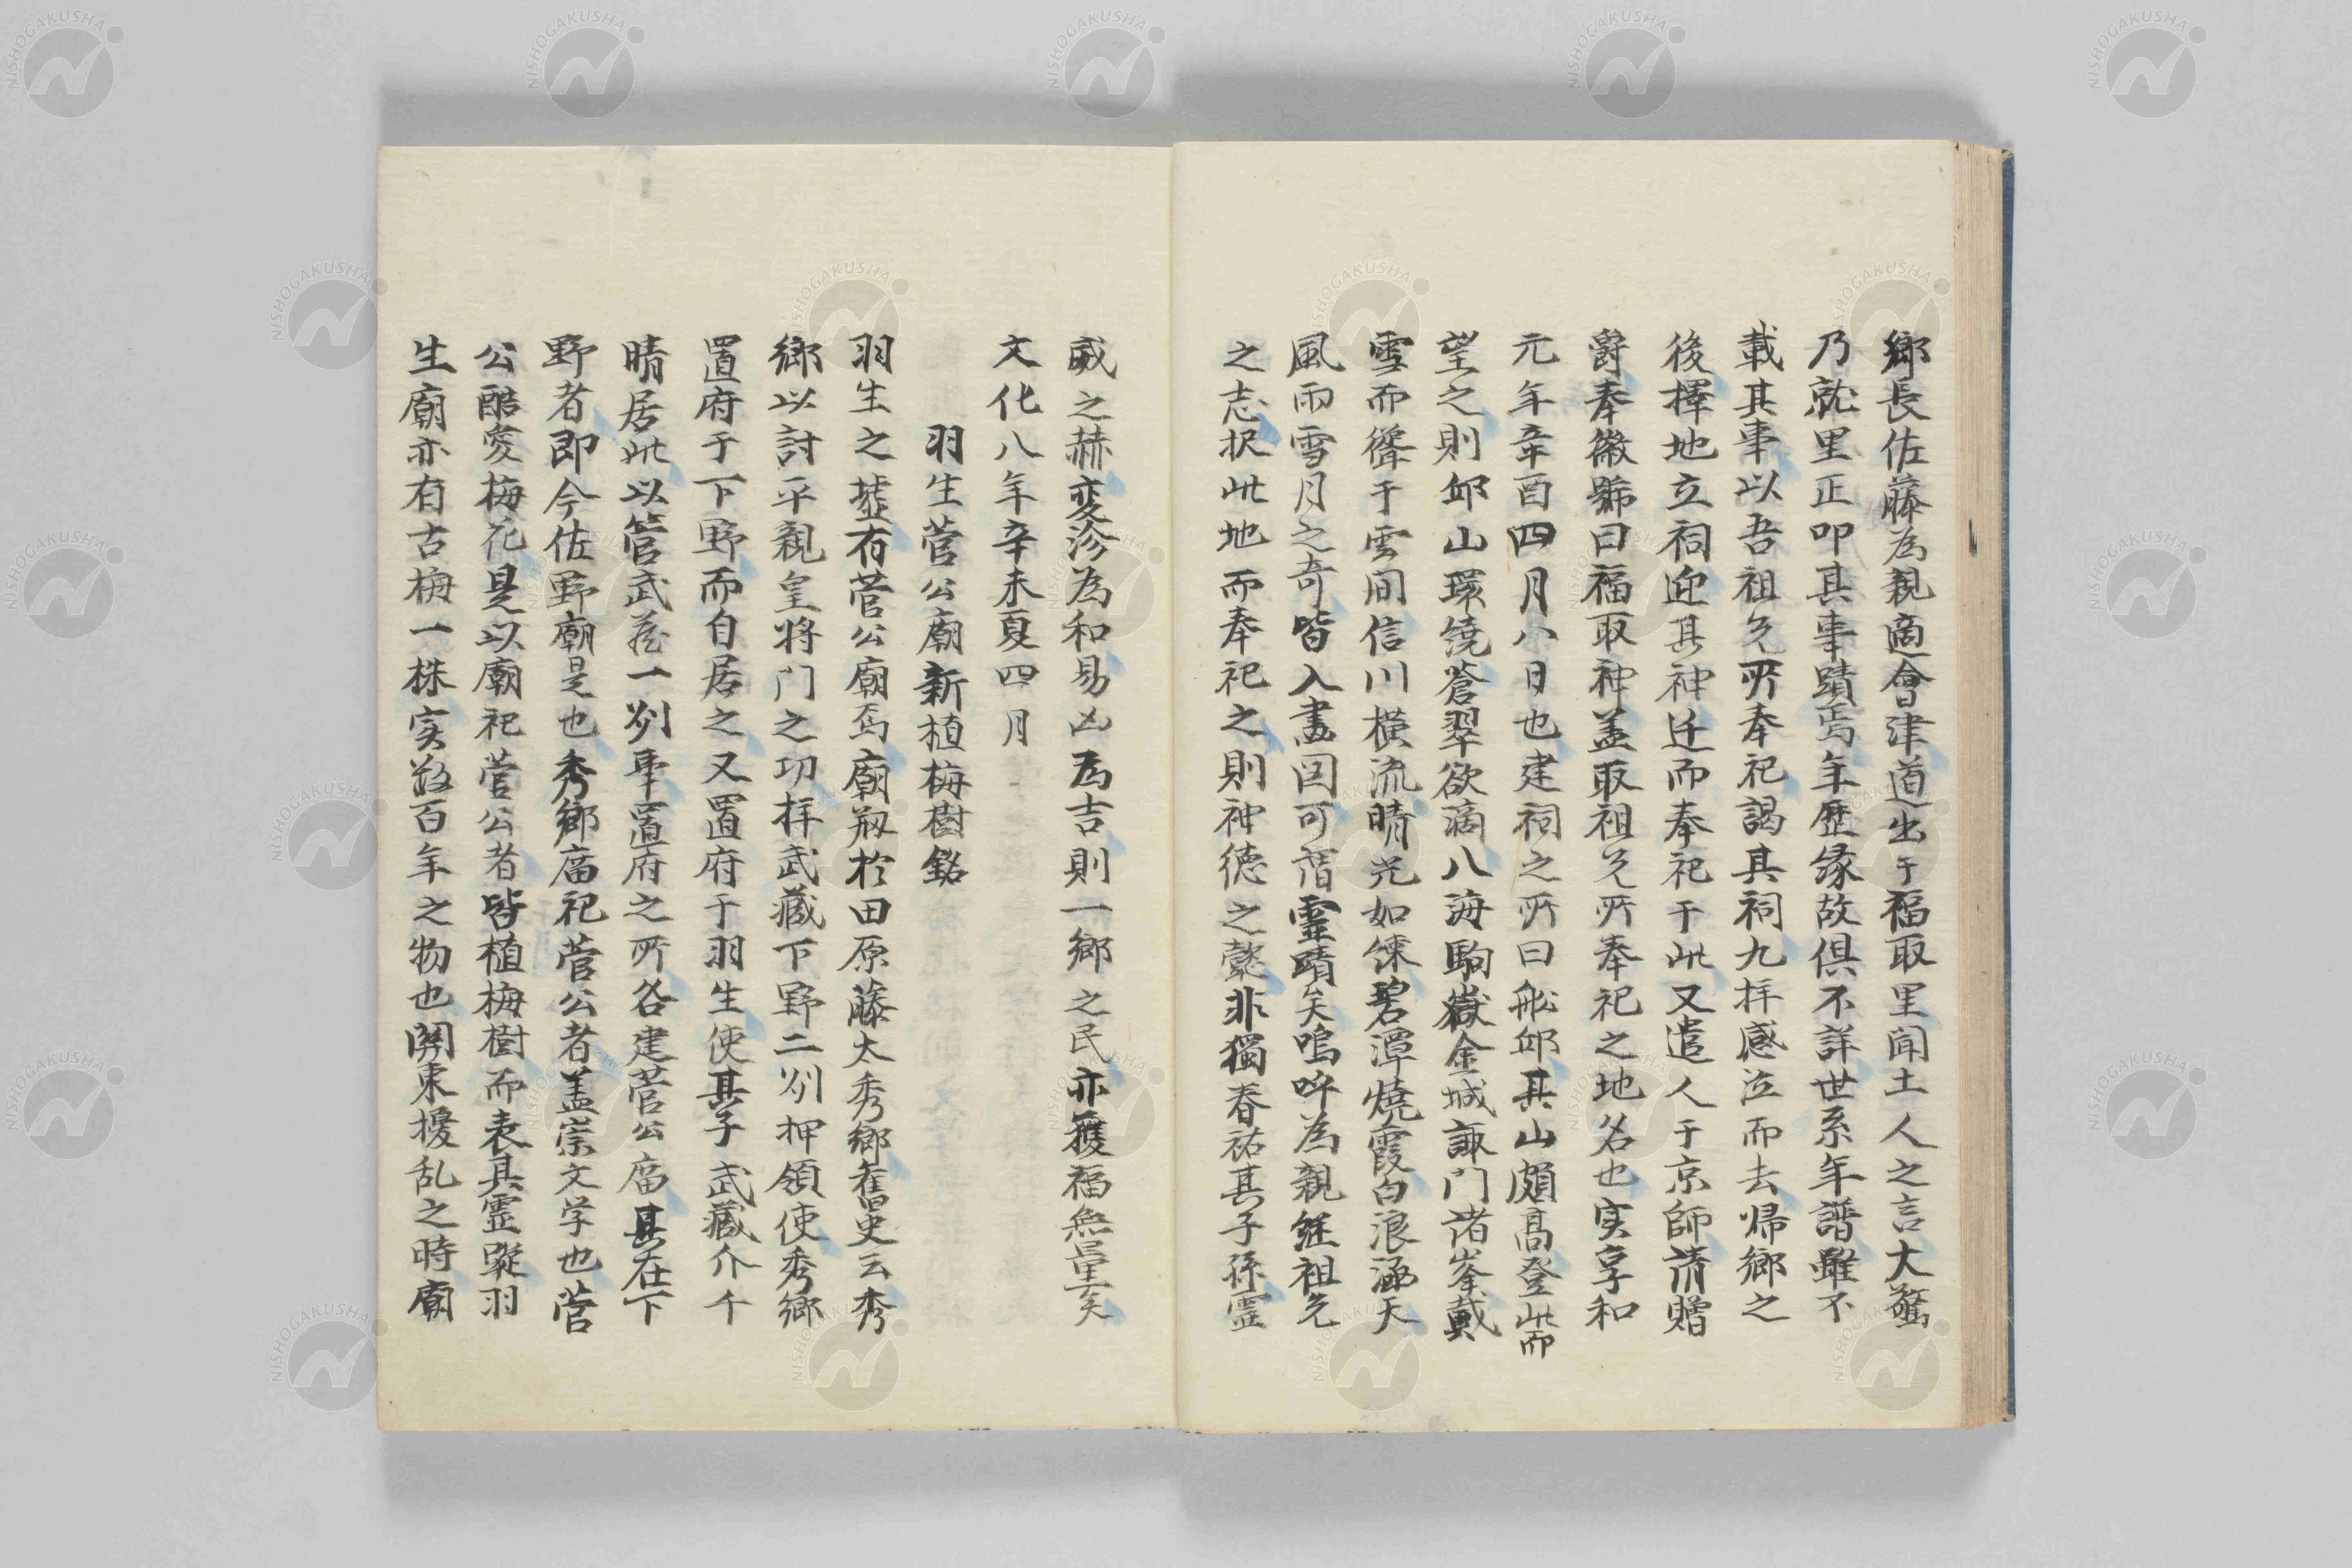 郷長佐藤為親適會津道出于福取里聞土人之言大驚
乃就里正叩其事蹟焉年歴縁故俱不詳世系年譜雖不
載其事以吾祖先所奉祀謁其祠九拝感泣而去帰郷之
後擇地立祠迎其神迁而奉祀于此又遣人于京師請贈
爵奉徽號曰福取神盖取祖先所奉祀之地名也実享和
元年辛酉四月八日也建祠之所曰舩邱其山頗高登此而
望之則邱山環繞蒼翠欲滴八海駒嶽金城諏門諸峯戴
雪而聳于雲间信川横流晴光如練碧潭燒霞白浪涵天
風雨雪月之奇皆入畫図可謂靈蹟矣嗚呼為親継祖先
之志択此地而奉祀之則神徳之懿非獨春祐其子孫霊
威之赫変沴為和易凶為吉則一郷之民亦獲福無量矣
文化八年辛未夏四月
羽生菅公廟新植梅樹銘
羽生之墟有菅公廟焉廟剏於田原藤太秀郷舊史云秀
郷以討平親皇将门之功拝武藏下野二州押領使秀郷
置府于下野而自居之又置府于羽生使其子武藏介千
晴居此以管武蔵一州事置府之所各建菅公廟其在下
野者即今佐野廟是也秀郷廟祀菅公者盖崇文学也菅
公酷愛梅花是以廟祀菅公者皆植梅樹而表其霊蹤羽
生廟亦有古梅一株実数百年之物也関東擾乱之時廟
NISHOGAKUSHA